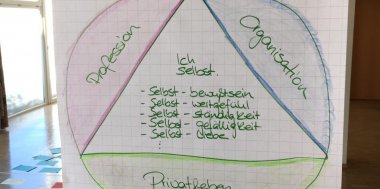 Profession
Organisation
Ich
selbst.
- Selbst - bewußtsein
- Selbst - wertgefühl
- Selbst - ständigkeit
- Selbst - gefälligkeit
- Selbst - liebe
:
Privatleben